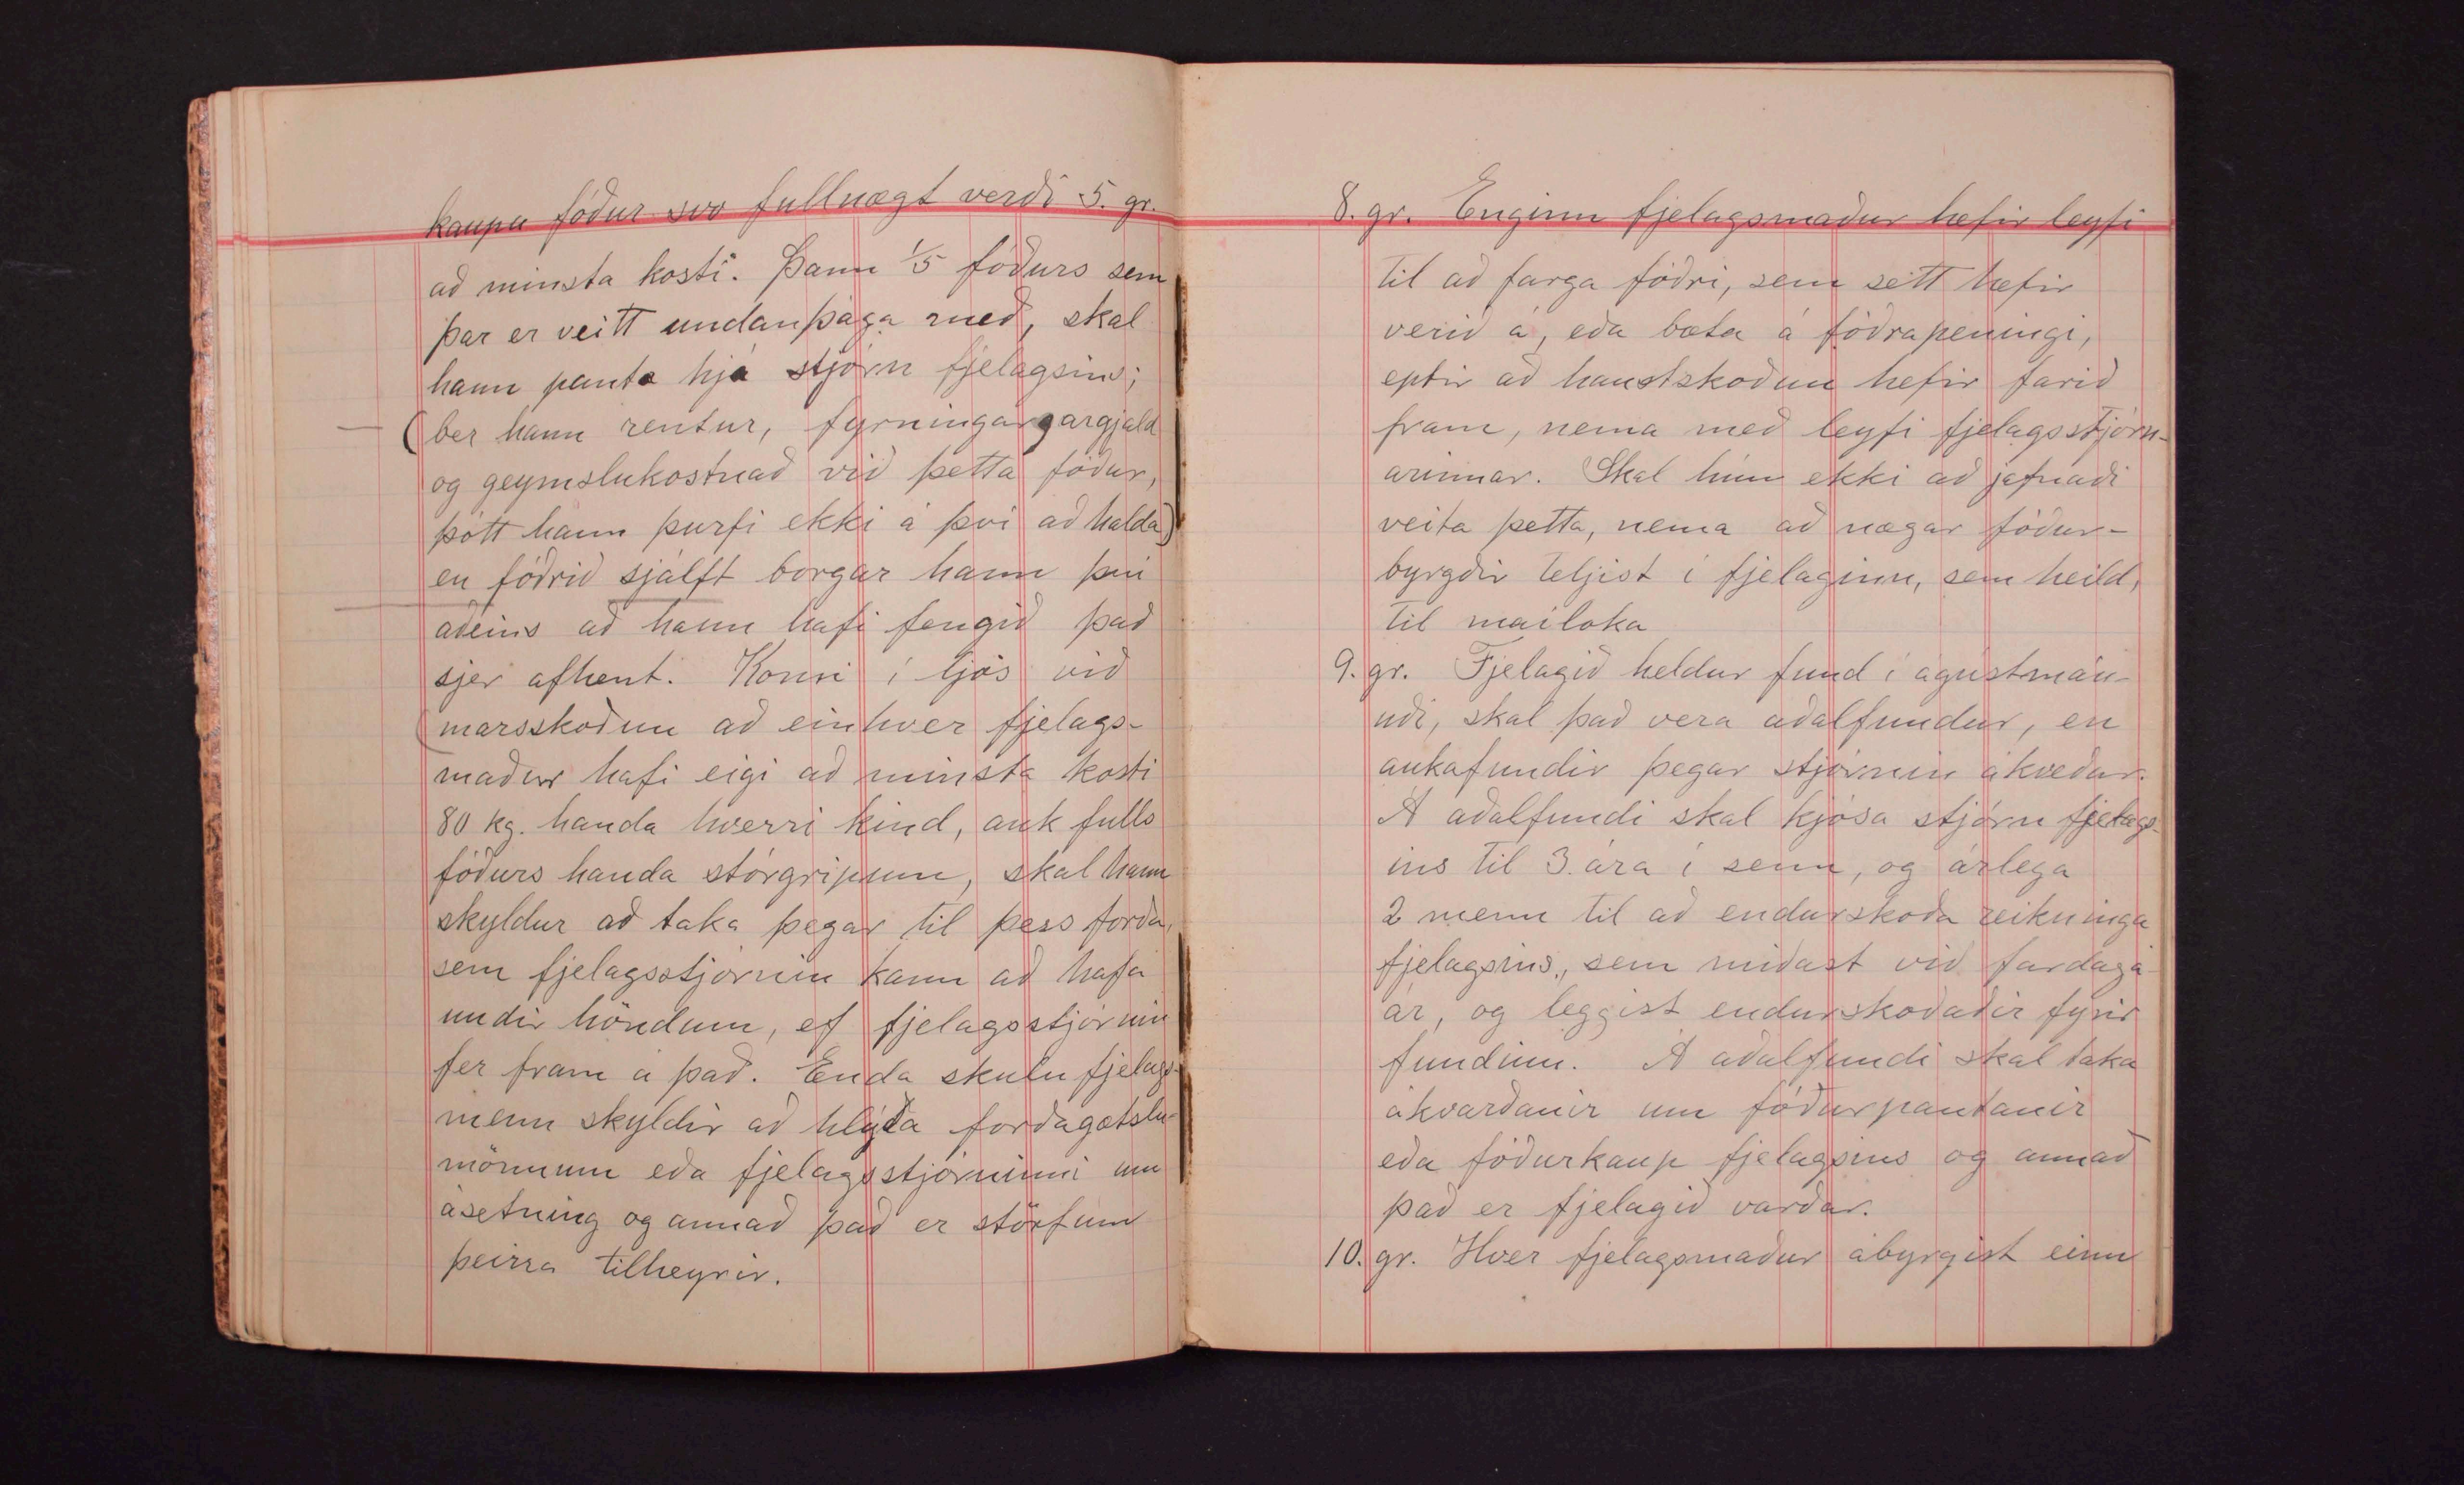 kaupa fóður svo fullnægt verði 5. gr.
að minsta kosti. Þann 1/5 fóðurs sem
þar er veitt undanþága með, skal
hann panta hjá stjórn fjelagsins;
(ber hann rentur, fyrningargargjald
og geymslukostnað við þetta fóður,
þótt hann þurfi ekki á því að halda)
en fóðrið sjálft borgar hann því
aðeins að hann hafi fengið það
sjer afhent. Komi í ljós við
(marsskoðun að einhver fjelags-
maður hafi eigi að minsta kosti
80 kg. handa hverri kind, auk fulls
fóðurs handa stórgripum, skal hann
skyldur að taka þegar til þess forða,
sem fjelagsstjórnin kann að hafa
undir höndum, ef fjelagsstjórnin
fer fram á það. Enda skulu fjelags-
menn skyldir að hlýða forðagætslu-
mönnum eða fjelagsstjórninni um
ásetning og annað það er störfum
þeirra tilheyrir.
8. gr. Enginn fjelagsmaður hefir leyfi
til að farga fóðri, sem sett hefir
verið á, eða bæta á fóðrapeningi,
eptir að haustskoðun hefir farið
fram, nema með leyfi fjelagsstjórn-
arinnar. Skal hún ekki að jafnaði
veita þetta, nema að nægar fóður-
byrgðir teljist í fjelaginu, sem heild,
til maíloka
9. gr. Fjelagið heldur fund í ágústmán-
uði, skal það vera aðalfundur, en
aukafundir þegar stjórnin ákveður.
Á aðalfundi skal kjósa stjórn fjelags-
ins til 3. ára í senn, og árlega
2 menn til að endurskoða reikninga
fjelagsins, sem miðast við fardaga-
ár, og leggist endurskoðaðir fyrir
fundinn. Á aðalfundi skal taka
ákvarðanir um fóðurpantanir
eða fóðurkaup fjelagsins og annað
það er fjelagið varðar.
10. gr. Hver fjelagsmaður ábyrgist einn